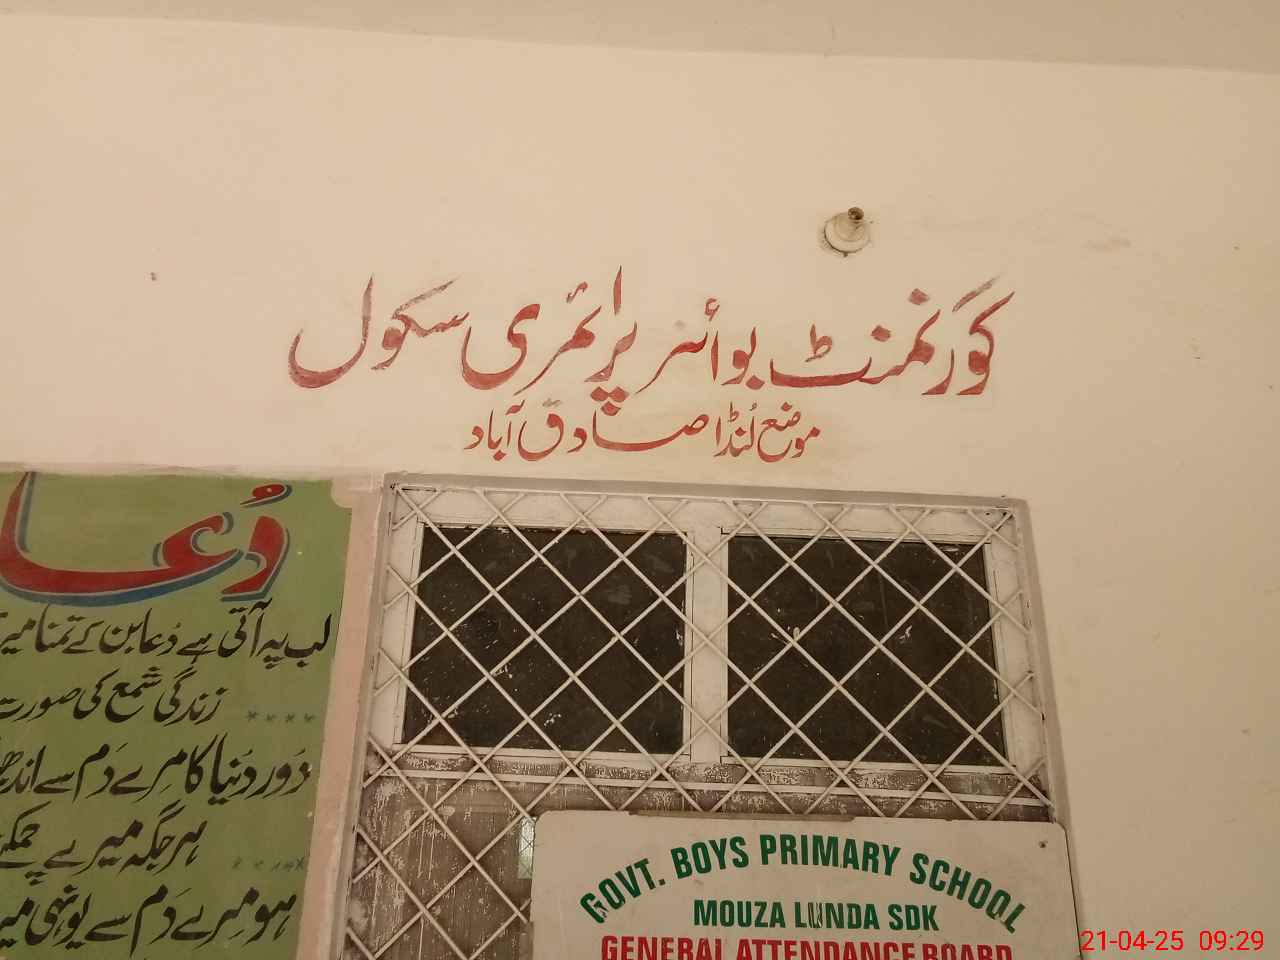 گورنمنٹ بوائز پرائمری سکول
موضع لُنڈا صادق آباد
دُعا
لب پہ آتی ہے دُعا بن کے تمنا
زندگی شمع کی صورت
دَور دُنیا کا مرے دَم سے
ہر جگہ میرے
ہو مِرے دَم سے یونہی
GOVT. BOYS PRIMARY SCHOOL
MOUZA LUNDA SDK
GENERAL ATTENDANCE BOARD
21-04-25 09:29